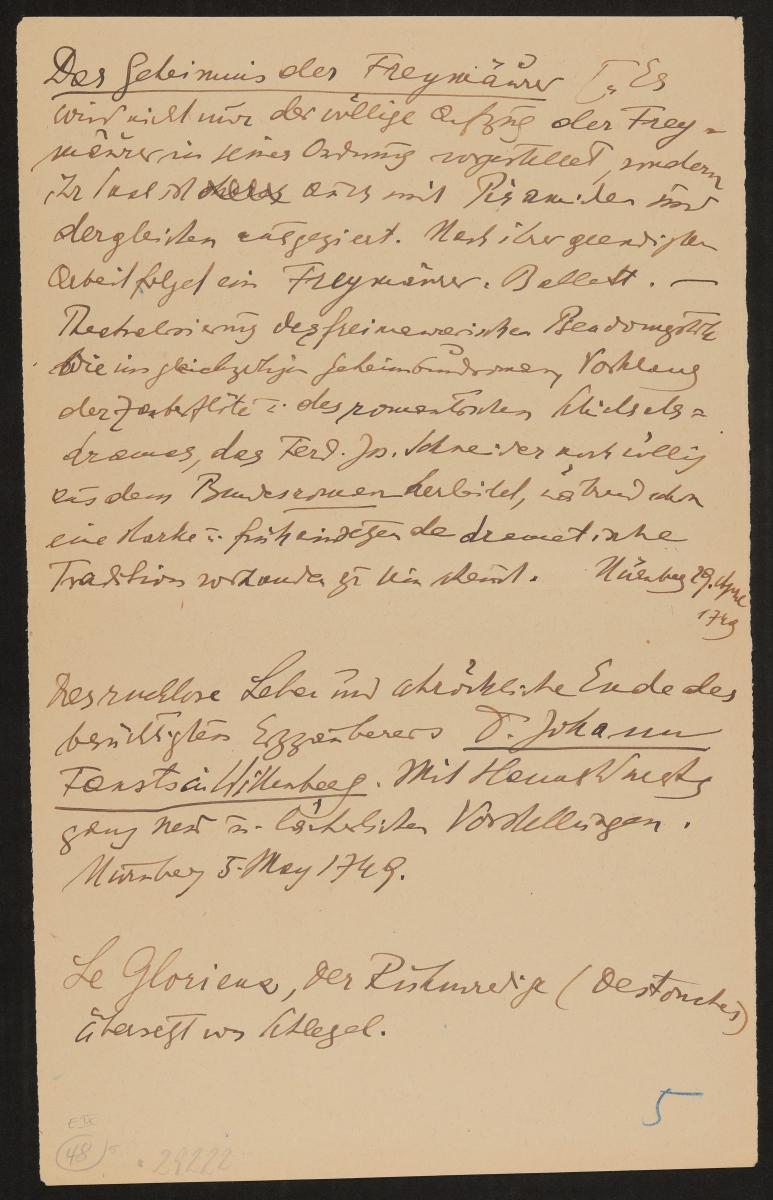 Das Geheimnis der Freymäurer [„Es
wird nicht nur der völlige Aufzug der Frey=
mäurer in seiner Ordnung vorgestellet, sondern
ihr Saal ist auch mit Piramiden und
dergleichen ausgeziert. Nach ihrer geendigten
Arbeit folget ein Freymäurer-Ballett. —
Theatralisierung des freimaurerischen
wie im gleichzeitigen Geheimbundroman, Vorklang
der Zauberflöte u. des romantischen Schicksals=
dramas, das Ferd. Jos. Schneider noch völlig
aus dem Bundesroman herleitet, während schon
eine starke u. früh einsetzende dramatische
Tradition vorhanden zu sein scheint. Nürnberg 29. April
1749
Das ruchlose Leben und schröckliche Ende des
berüchtigten Erzzauberers D. Johann
Fausts in Wittenberg. Mit Hannswursts
ganz neu u. lächerlichen Vorstellungen.
Nürnberg 5. May 1749.
Le Glorieux, der Ruhmredige (Destouches)
übersetzt von Schlegel.
5
E IX
48
29222